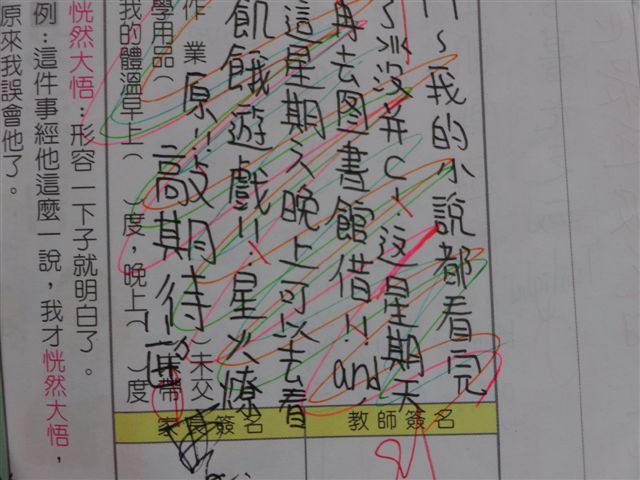 我的小說都看完
这星期天
再去図書館借!! and
這星期六晚上可以去看
飢餓遊戲!!星火燎
原!!敲高期待
教師簽名
家長簽名
作業 )未交
學用品( 未帶
我的體溫早上( )度,晚上( )度
恍然大悟:形容一下子就明白了。
例:這件事經他這麼一說,我才恍然大悟,
原來我誤會他了。